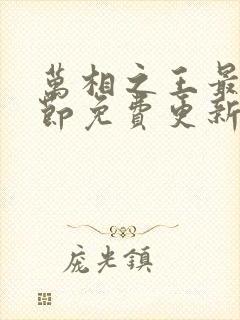 萬相之王最
節免費更新
庞光鎮